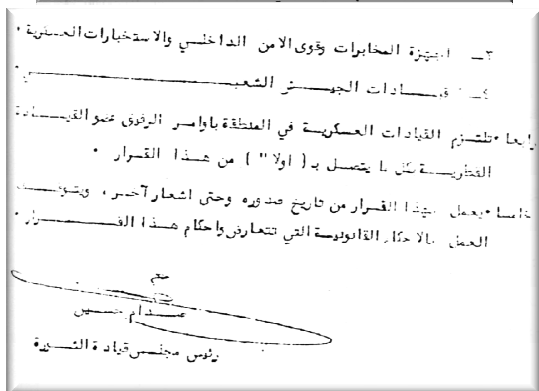 ٣ـ اجهزة المخابرات وقوى الامن الداخلي والاستخبارات العسكرية •
٤ـ قيادات الجيش الشعبي •
رابعا •تلتزم القيادات العسكرية في المنطقة باوامر الرفيق عضو القيادة
القطرية بكل ما يتصل بـ ( اولا " ) من هذا القرار •
خامسا •يعمل بهذا القرار من تاريخ صدوره وحتى اشعار آخر ، ويتوقف
العمل بالاحكام القانونية التي تتعارض واحكام هذا القرار •
صدام حسين
رئيس مجلس قيادة الثورة